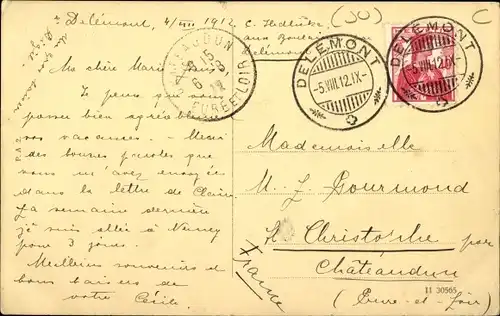 Delémont, 4/VIII 1912
(JU)
C
CHATEAUDUN
EURE-ET-LOIR
DELÉMONT
-5.VIII.12.IX-
DELÉMONT
-5.VIII.12.IX-
Ma chère Marie
Je pense que vous
passez bien agréablement
vos vacances. - Merci
des bonnes paroles que
vous m'avez envoyées
dans la lettre de Claire
La semaine dernière
je suis allée à
pour 3 jours.
Meilleurs souvenirs et
bons baisers de
votre Cécile.
Mademoiselle
M. L. Gourmond
St Christophe par
Châteaudun
(Eure-et-Loir)
France
11 30565